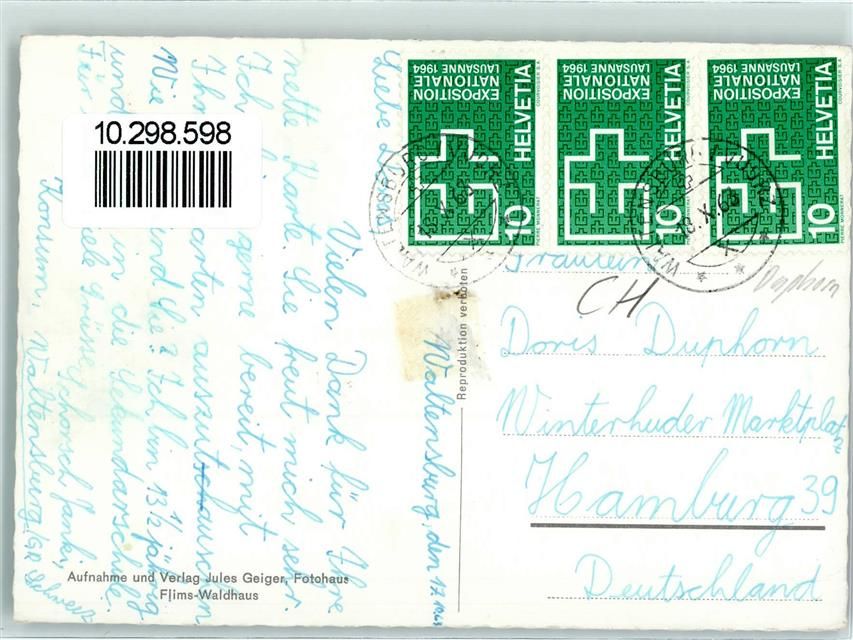 10.298.598
EXPOSITION
NATIONALE
LAUSANNE 1964
HELVETIA
10
COURVOISIER S.A.
PIERRE MONNERAT
EXPOSITION
NATIONALE
LAUSANNE 1964
HELVETIA
10
COURVOISIER S.A.
PIERRE MONNERAT
EXPOSITION
NATIONALE
LAUSANNE 1964
HELVETIA
10
COURVOISIER S.A.
PIERRE MONNERAT
Waltensburg, den 17.
Liebe
Vielen Dank für Ihre
nette Karte. Sie freut mich sehr.
Ich gerne bereit, mit
Ihn auszutauschen
Wie sind Sie? Ich bin 13 1/2 jährig
und in die Sekundarschule.
Für viele Grüsse Schorsch Janki,
Konsum, Waltensburg/GR Schweiz
Reproduktion verboten
Aufnahme und Verlag Jules Geiger, Fotohaus
Flims-Waldhaus
Fräulein
CH
Duphorn
Doris Duphorn
Winterhuder Marktplatz
Hamburg 39
Deutschland